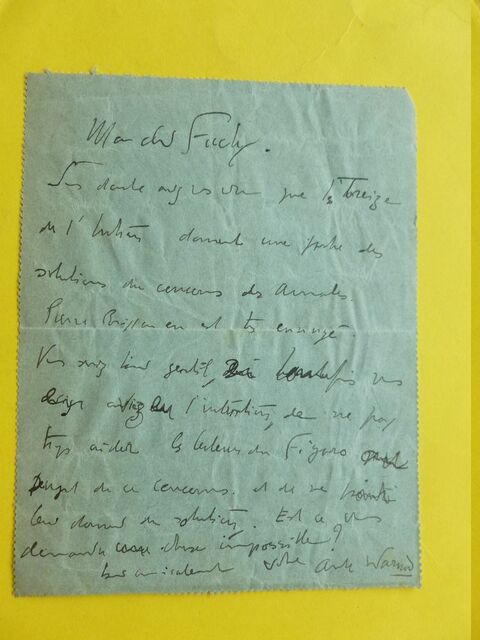 Mon cher Fuchs.
Sans doute avez vous vu que les Treize
de l'Intran donnent une partie des
solutions du concours des Annales.
Pierre Brisson en est très ennuyé.
Vous seriez bien gentil, si toutefois vous
aviez l'intention, de ne pas
trop aider les lecteurs du Figaro
au sujet de ce concours et de ne
leur donner de solutions. Est ce vous
demander chose impossible?
bien amicalement votre André Warnod